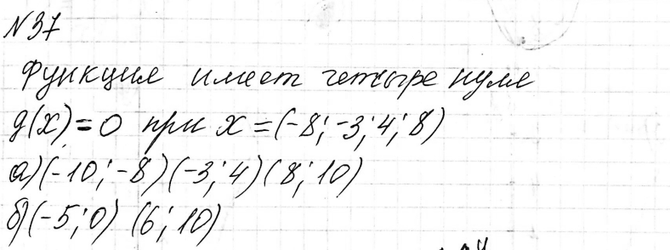 №37
Функция имеет четыре нуля
g(x)=0 при x=(-8;-3;4;8)
а)(-10;-8)(-3;4)(8;10)
б)(-5;0) (6;10)